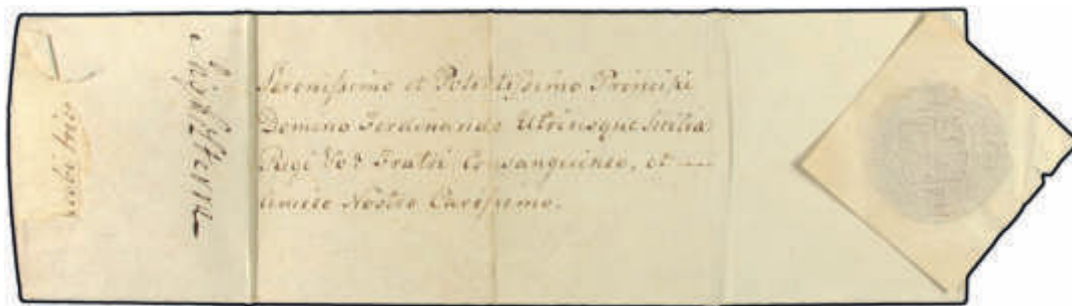 Serenissimo et Potentissimo Principi
Domino Ferdinando Utriusque Siciliæ
Regi &c &c Fratri Consanguineo, et
Amico Nostro Carissimo.